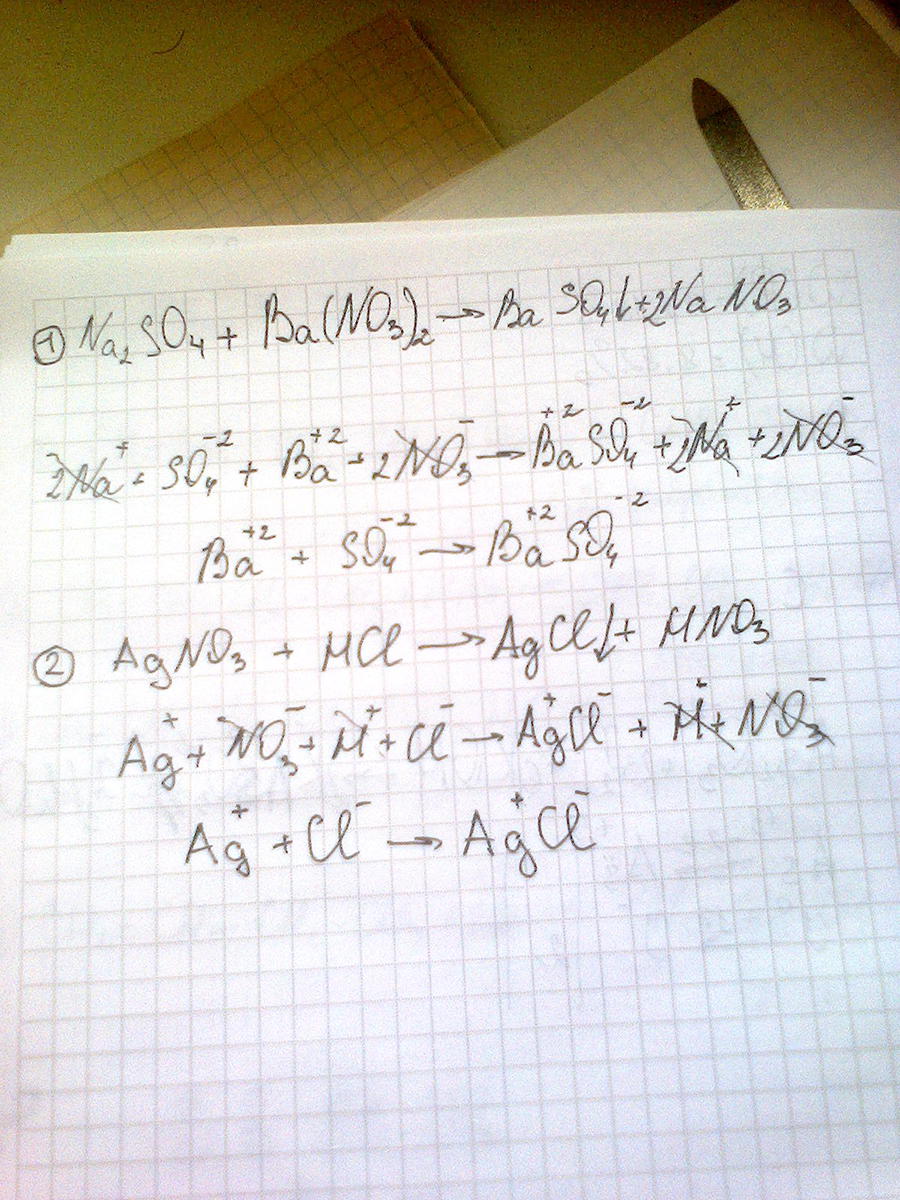 ① Na₂SO₄ + Ba(NO₃)₂ → BaSO₄↓ + 2NaNO₃
2Na⁺ + SO₄⁻² + Ba⁺² + 2NO₃⁻ → Ba⁺²SO₄⁻² + 2Na⁺ + 2NO₃⁻
Ba⁺² + SO₄⁻² → Ba⁺²SO₄⁻²
② AgNO₃ + HCl → AgCl↓ + HNO₃
Ag⁺ + NO₃⁻ + H⁺ + Cl⁻ → Ag⁺Cl⁻ + H⁺ + NO₃⁻
Ag⁺ + Cl⁻ → Ag⁺Cl⁻